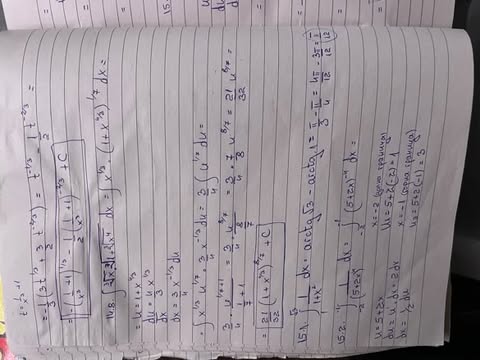 t = 1/x³ + 1
= -1/3 (3t^(1/3) + 3/2 t^(-2/3)) = t^(-1/3) - 1/2 t^(-2/3) =
= -(1/x³ + 1)^(1/3) - 1/2 (1/x³ + 1)^(-2/3) + C
14.8. ∫ dx = ∫ x^(1/3) · (1 + x^(4/3))^(1/7) dx =
= u = 1 + x^(4/3)
du/dx = 4/3 x^(1/3)
dx = 3/4 x^(-1/3) du
· ∫ x^(1/3) u^(1/7) · 3/4 x^(-1/3) du = 3/4 ∫ u^(1/7) du =
3/4 · u^(1/7+1) / (1/7+1) = 3/4 · u^(8/7) / (8/7) = 3/4 · 7/8 u^(8/7) = 21/32 u^(8/7) =
= 21/32 (1 + x^(4/3))^(8/7) + C
15.1. ∫₁^√3 1/(1+x²) dx = arctg √3 - arctg 1 = π/3 - π/4 = 4π/12 - 3π/12 = π/12
15.2. ∫₋₂^-1 1/(5+2x)⁴ dx = ∫₋₂^-1 (5+2x)^-4 dx =
u = 5+2x
du = u' dx = 2 dx
dx = 1/2 du
x = -2 (долна граница)
u₁ = 5+2(-2) = 1
x = -1 (горна граница)
u₂ = 5+2(-1) = 3
15.